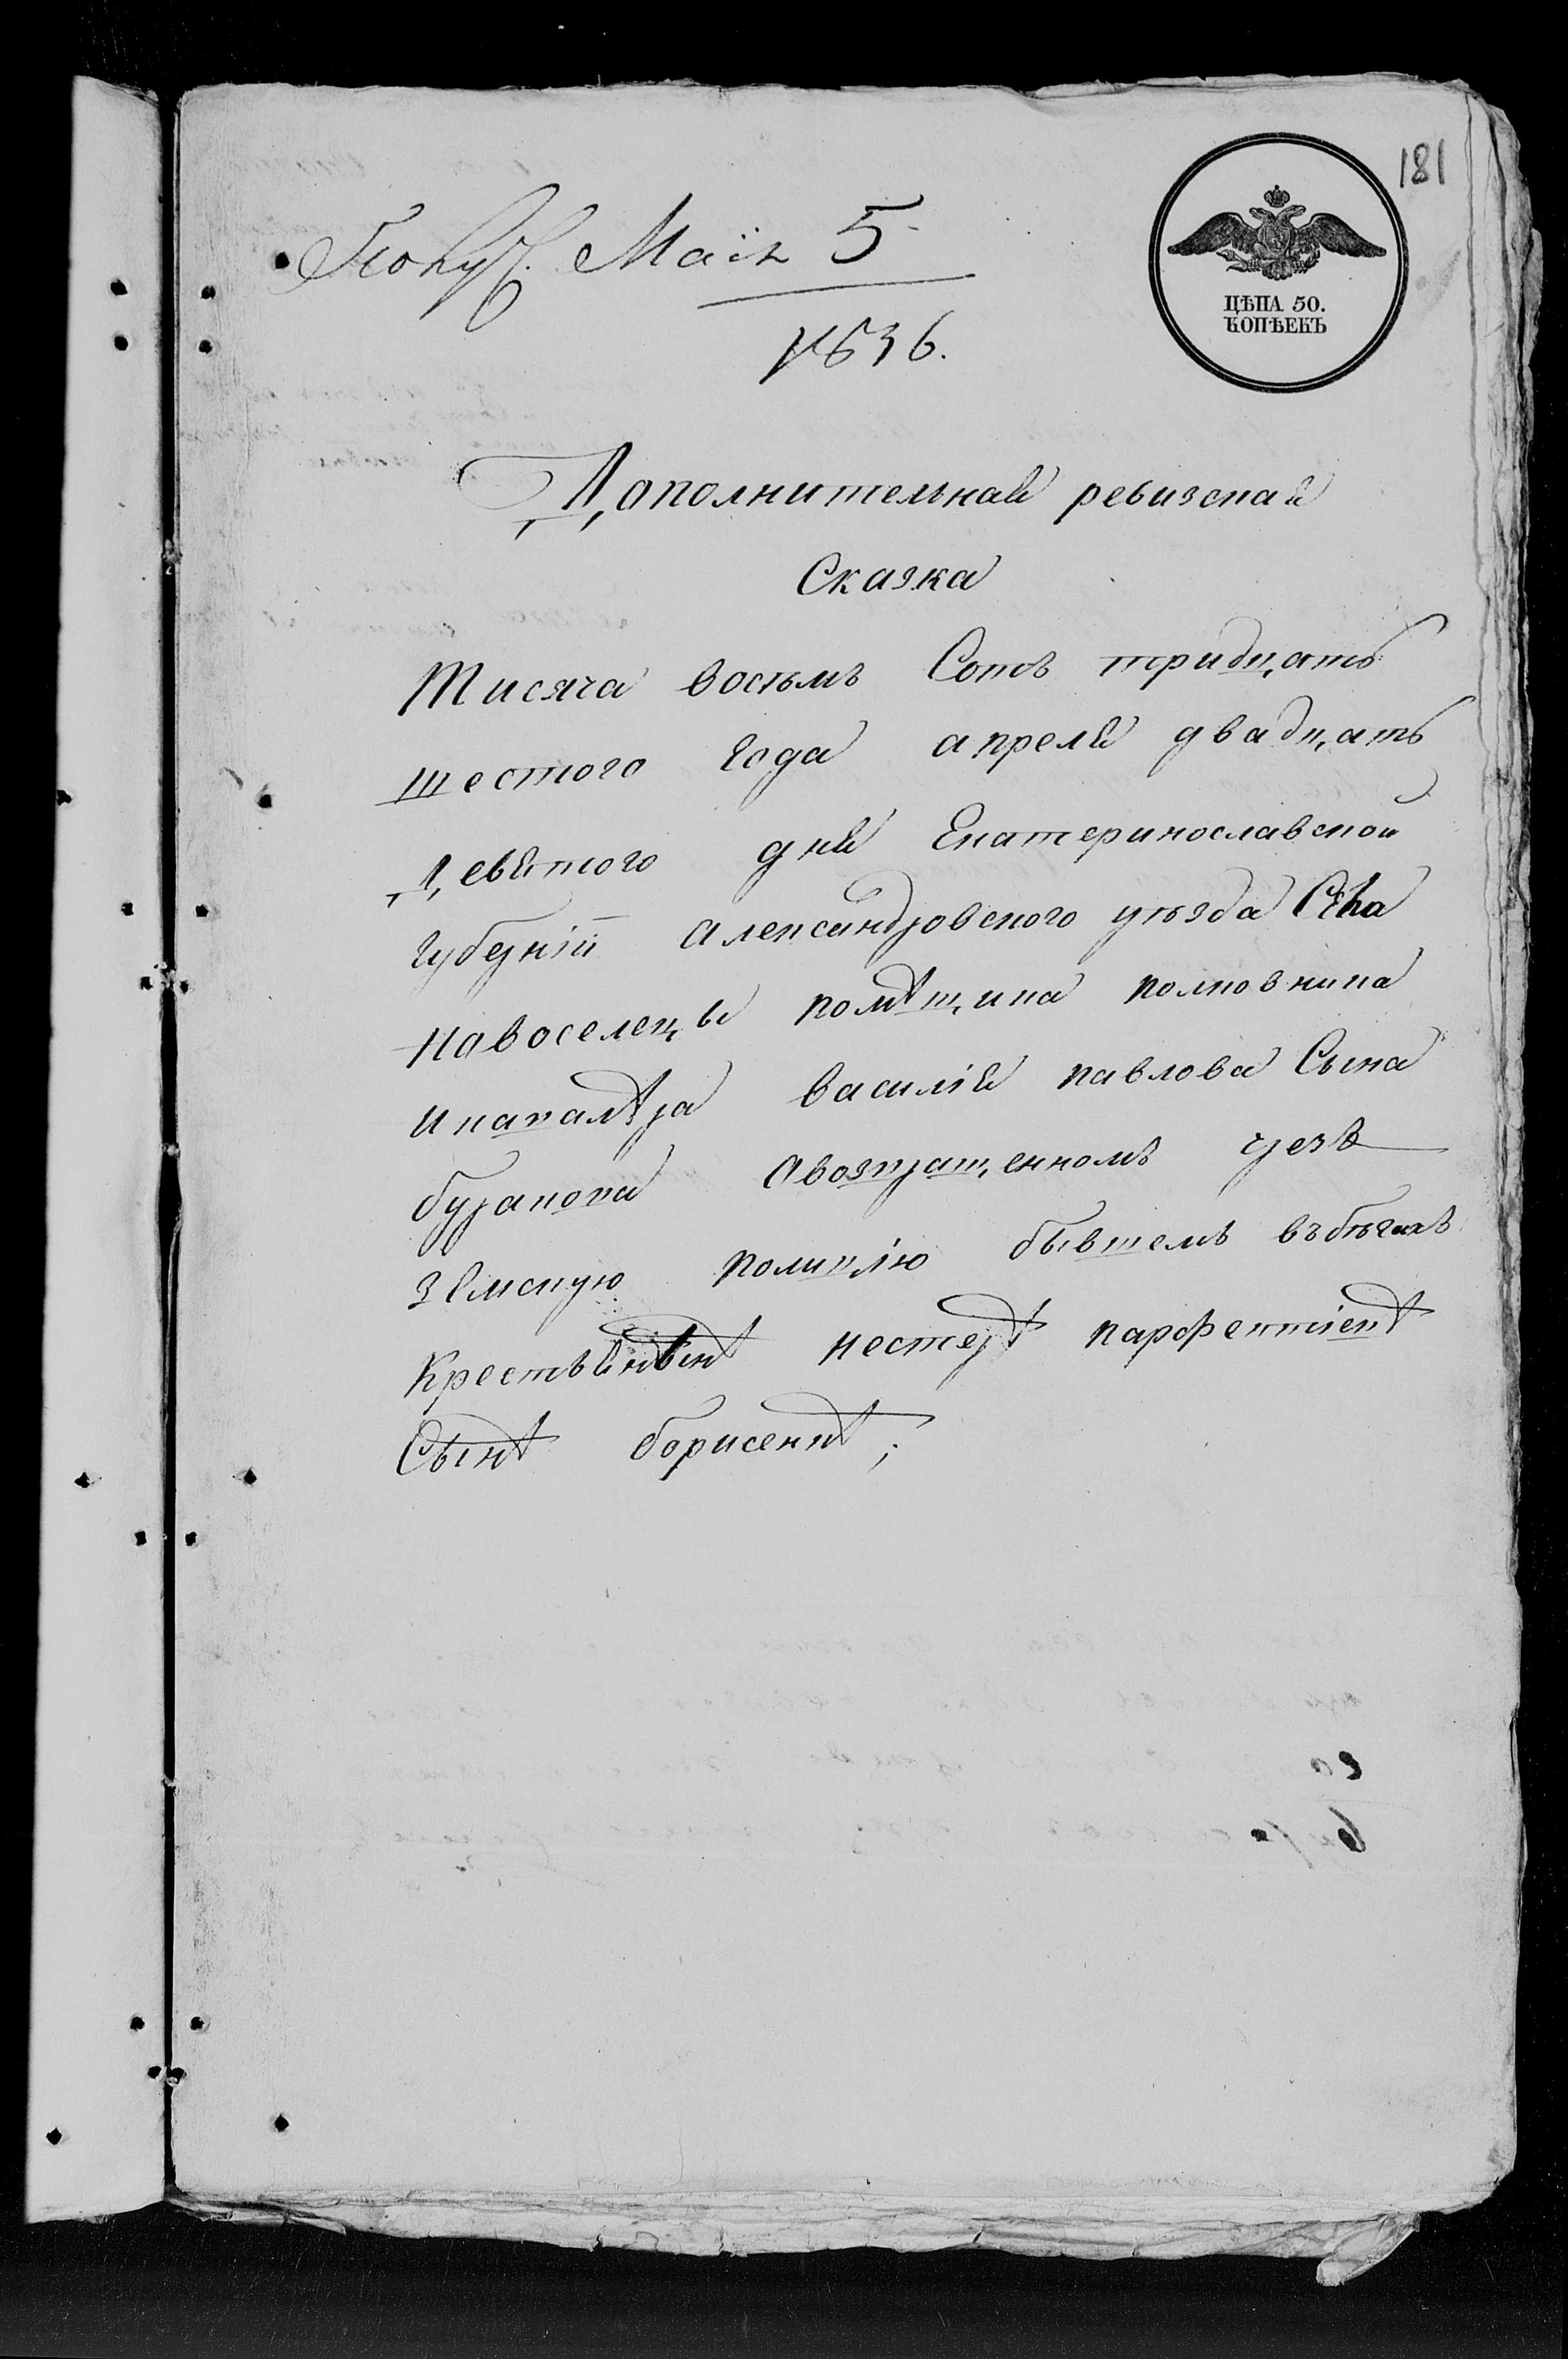 181
ЦѢПА 50.
КОПѢЕКЪ
Маія 5
1836.
Дополнительная ревизская
Сказка
Тисяча восъмъ Сотъ тридцать
шестого года апреля двадцать
Девятого дня Екатеринославской
Губерніи Александровского уѣзда
Новоселецы помѣщика полковника
и кавалѣра василія павлова Сына
буракова Авозвращенномъ чрезъ
Земскую полицію бывшемъ въбѣгахъ
Крестьянинѣ нестерѣ парфентіевѣ
Сынѣ борисенкѣ;